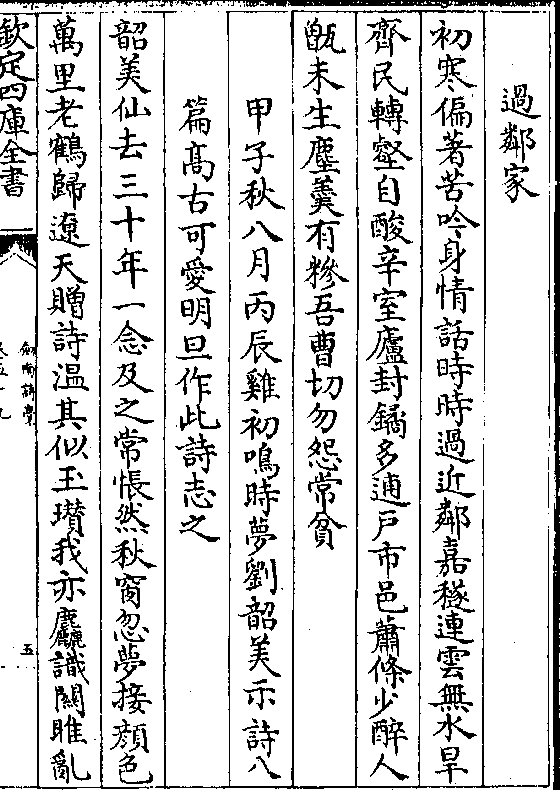 過鄰家
初寒偏著苦吟身情話時時過近鄰嘉穟連雲無水旱
齊民轉壑自酸辛室廬封鐍多逋戸市邑蕭條少醉人
甑未生塵羮有糝吾曹切勿怨常貧
甲子秋八月丙辰雞初鳴時夢劉韶美示詩八
篇髙古可愛明旦作此詩志之
韶美仙去三十年一念及之常悵然秋窗忽夢接顔色
萬里老鶴歸遼天贈詩温其似玉瓚我亦麤識闗雎亂
欽定四庫全書
劍南詩藁
五